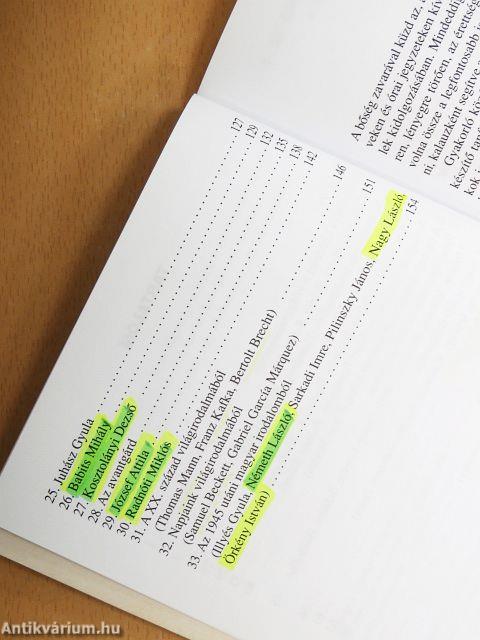 25. Juhász Gyula ........ 127
26. Babits Mihály ........ 129
27. Kosztolányi Dezső ........ 132
28. Az avantgárd ........ 135
29. József Attila ........ 138
30. Radnóti Miklós ........ 142
31. A XX. század világirodalmából
(Thomas Mann, Franz Kafka, Bertolt Brecht) ........ 146
32. Napjaink világirodalmából
(Samuel Beckett, Gabriel García Márquez) ........ 151
33. Az 1945 utáni magyar irodalomból
(Illyés Gyula, Németh László, Sarkadi Imre, Pilinszky János, Nagy László,
Örkény István) ........ 154
A bőség zavarával küzd az, a
veken és órai jegyzeteken kív
lek kidolgozásában. Mindeddi
ren, lényegre törően, az érettség
volna össze a legfontosabb is
ni, kalauzként segítve a
Gyakorló kö
készítő taná
kok i
Antikvárium.hu